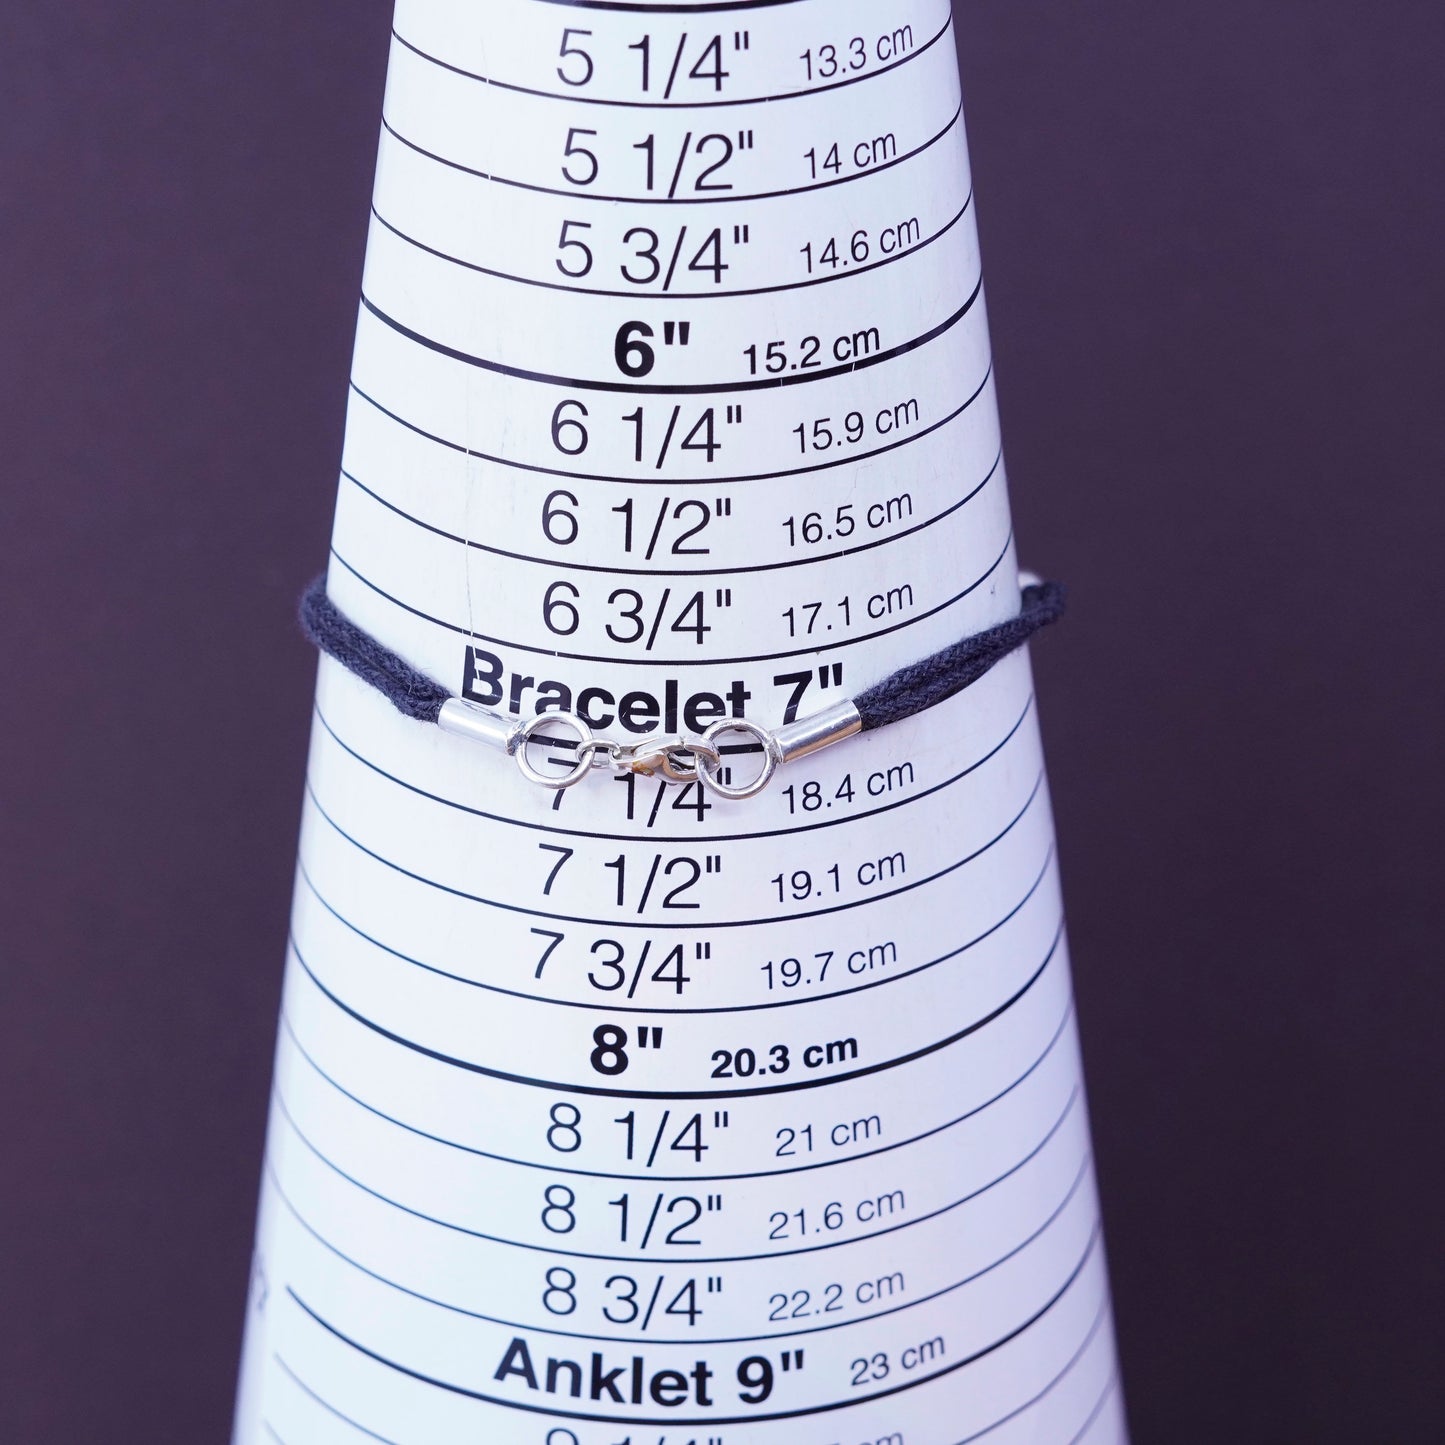 5 1/4" 13.3 cm
5 1/2" 14 cm
5 3/4" 14.6 cm
6" 15.2 cm
6 1/4" 15.9 cm
6 1/2" 16.5 cm
6 3/4" 17.1 cm
Bracelet 7"
7 1/4" 18.4 cm
7 1/2" 19.1 cm
7 3/4" 19.7 cm
8" 20.3 cm
8 1/4" 21 cm
8 1/2" 21.6 cm
8 3/4" 22.2 cm
Anklet 9" 23 cm